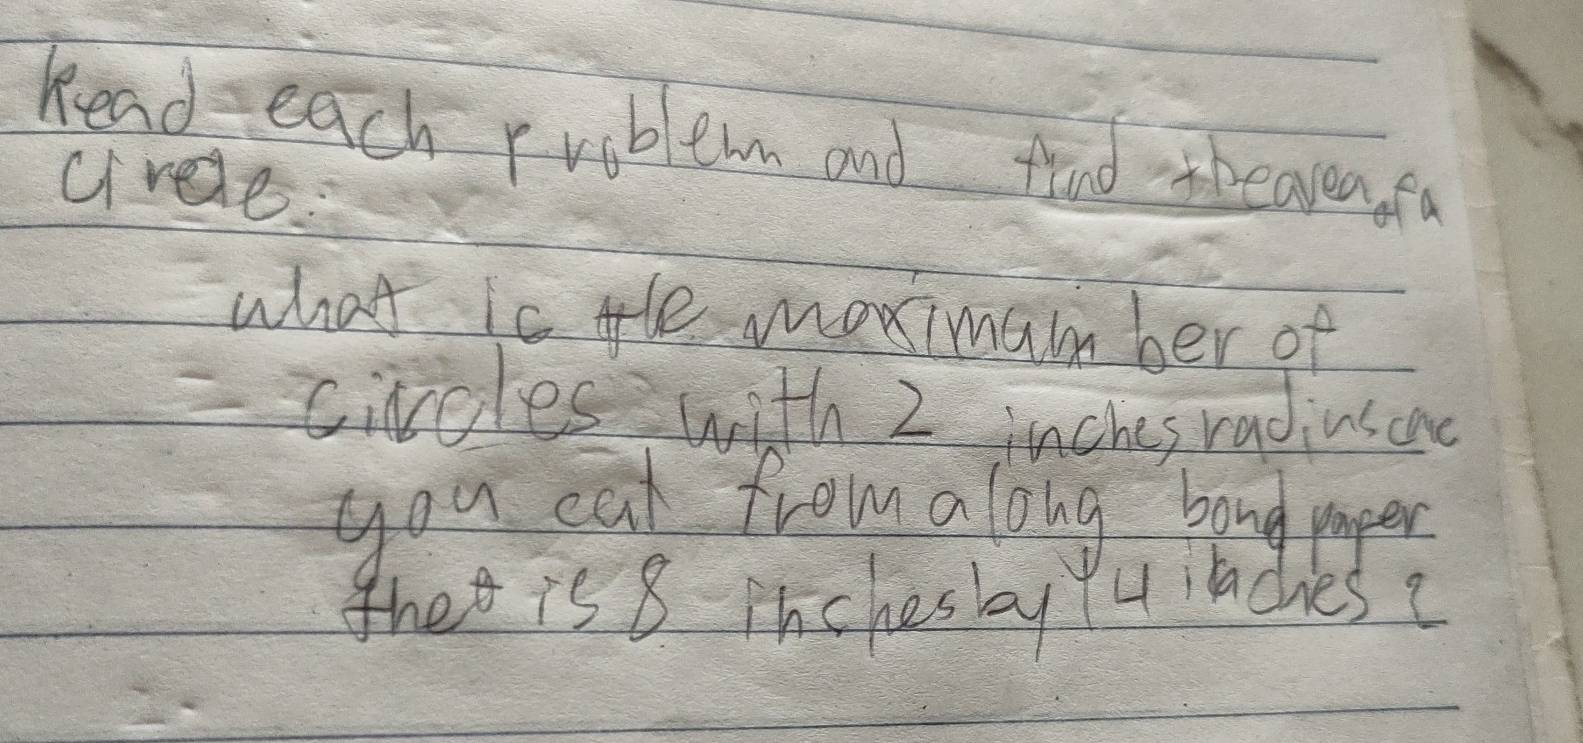 Read each problem and find thearea of a
circle:
what is the maximum ber of
circles with 2 inches radius cae
you cut from a long bond paper
thet is 8 inches by 14 inches?